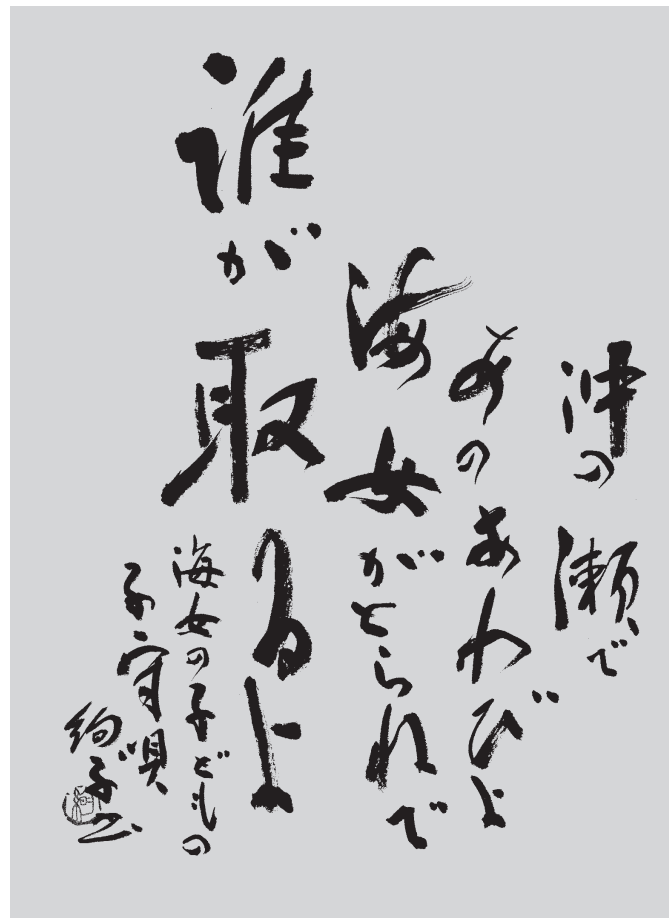 沖の瀬で
あのあわびよ
海女がとらねで
誰が取るよ
海女の子どもの
子守唄
絢子書